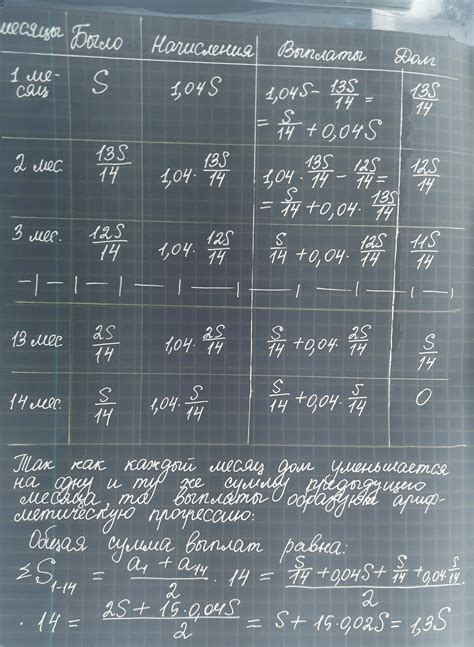 месяцы Было Начисления Выплаты Долг
1 ме-сяц S 1,04S 1,04S - 13S/14 = 13S/14
= S/14 + 0,04S
2 мес. 13S/14 1,04 · 13S/14 1,04 · 13S/14 - 12S/14 = 12S/14
= S/14 + 0,04 · 13S/14
3 мес. 12S/14 1,04 · 12S/14 S/14 + 0,04 · 12S/14 11S/14
13 мес 2S/14 1,04 · 2S/14 S/14 + 0,04 · 2S/14 S/14
14 мес. S/14 1,04 · S/14 S/14 + 0,04 · S/14 0
Так как каждый месяц долг уменьшается
на одну и ту же сумму предыдущего
месяца, то выплаты образуют ариф-
метическую прогрессию:
Общая сумма выплат равна:
ΣS₁₋₁₄ = (a₁ + a₁₄)/2 · 14 = (S/14 + 0,04S + S/14 + 0,04 S/14)/2
· 14 = (2S + 15·0,04S)/2 = S + 15·0,02S = 1,3S